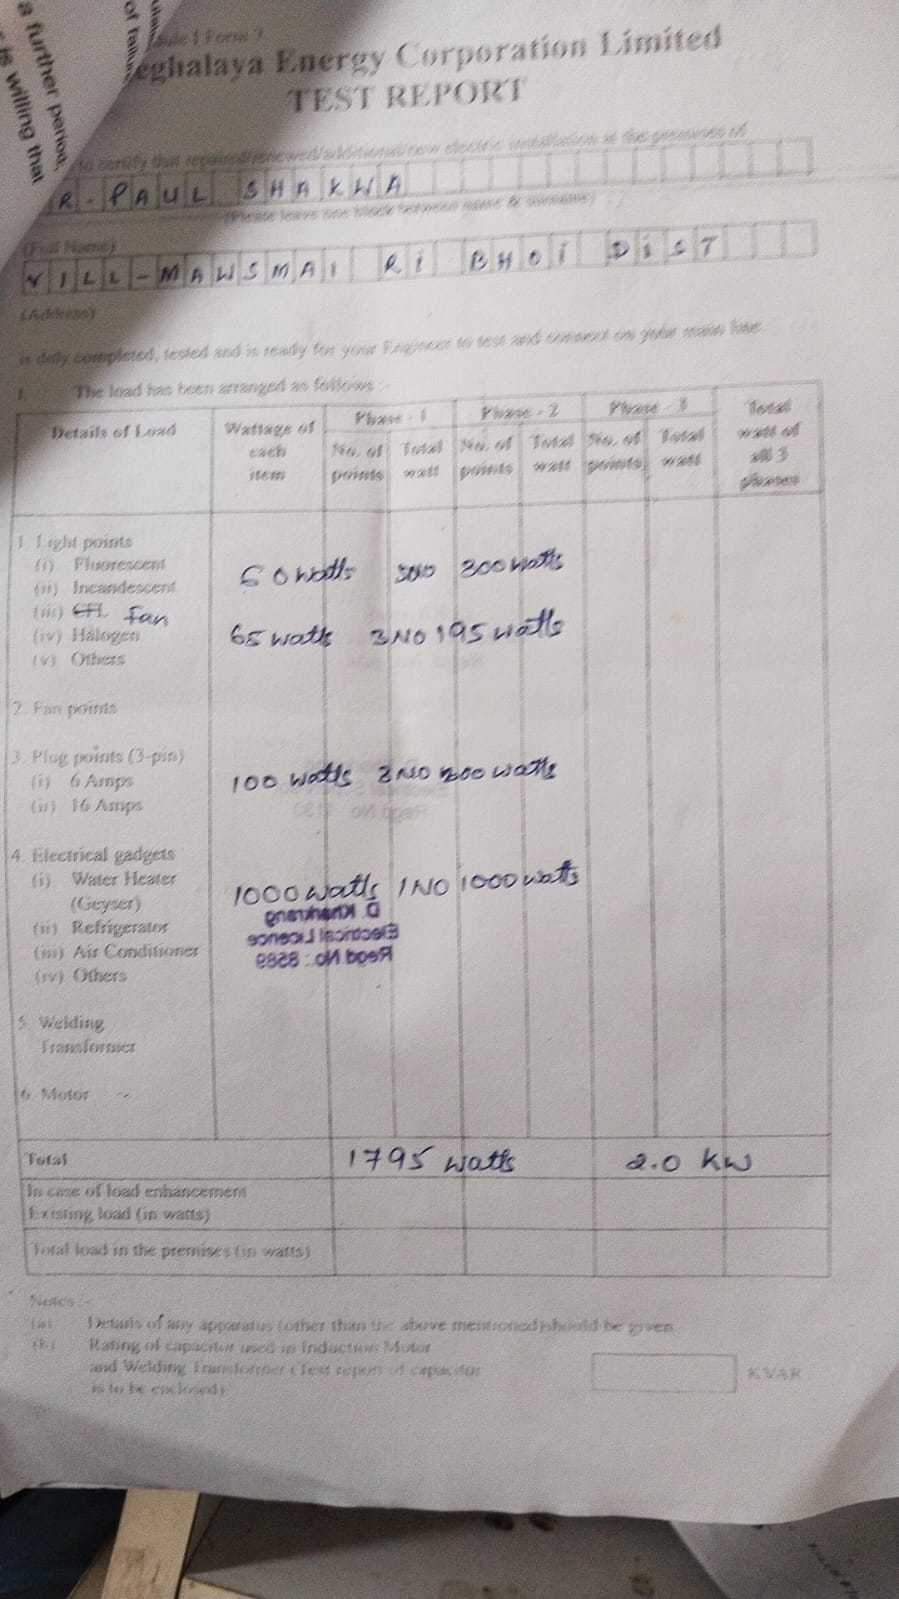 a further period,
is willing that
of failure
Rule 1 Form 7
eghalaya Energy Corporation Limited
TEST REPORT
to certify that repaired/renewed/additional/new electric installation at the premises of
R. PAUL SHAKWA
(Please leave one blank between name & surname)
(Full Name)
VILL-MAWSMAI RI BHOI DIST
(Address)
is duly completed, tested and is ready for your Engineer to test and connect on your main line.
1 The load has been arranged as follows :-
Details of Load Wattage of each item Phase - 1 Phase - 2 Phase - 3 Total watt of all 3 phases
No. of points Total watt No. of points Total watt No. of points Total watt
1. Light points
(i) Fluorescent
60 watts 5NO 300 watts
(ii) Incandescent
(iii) CFL Fan
(iv) Halogen 65 watts 3 NO 195 watts
(v) Others
2. Fan points
3. Plug points (3-pin)
(i) 6 Amps 100 watts 3 NO 300 watts
(ii) 16 Amps
Regd No
4. Electrical gadgets
(i) Water Heater 1000 watts 1 NO 1000 watts
(Geyser)
D. Kharkrang
(ii) Refrigerator
Electrical Licence
(iii) Air Conditioner Regd No.: 8589
(iv) Others
5. Welding
Transformer
6. Motor
Total 1795 watts 2.0 KW
In case of load enhancement
Existing load (in watts)
Total load in the premises (in watts)
Notes :-
(a) Details of any apparatus (other than the above mentioned) should be given
(b) Rating of capacitor used in Induction Motor
and Welding Transformer (Test report of capacitor KVAR
is to be enclosed)